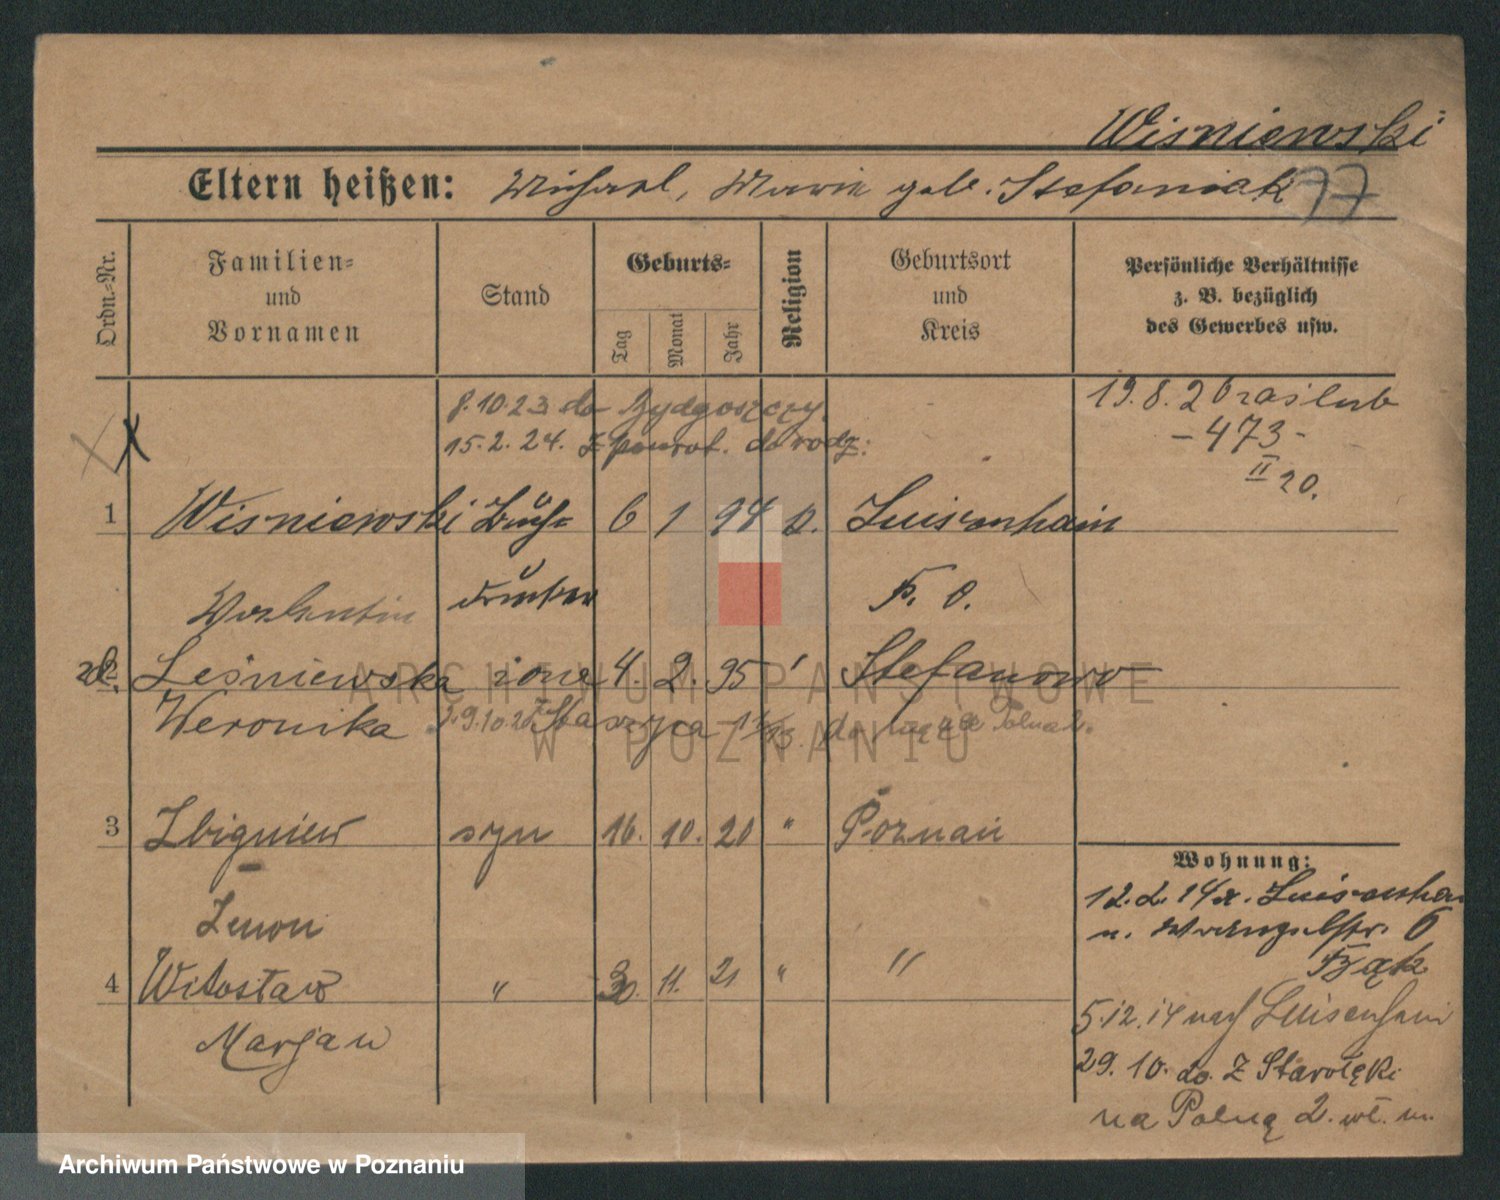 Wisniewski
Eltern heißen: Michael, Marie geb. Stefaniak
77
Ordn.-Nr.
Familien-
und
Vornamen
Stand
Geburts-
Tag
Monat
Jahr
Religion
Geburtsort
und
Kreis
Persönliche Verhältnisse
z. B. bezüglich
des Gewerbes usw.
8.10.23 do Bydgoszczy.
15.2.24. z powrot. do rodz:
19.8.20 zaślub
- 473 -
II 20.
1 Wisniewski Buch= 6 1 94 k. Luisenhain
Valentin drucker P. O.
2 Leśniewska żona 4. 2. 95 " Stefanowo
Weronika
3 Zbigniew syn 16. 10. 20 " Poznań
Zenon
4 Witosław " 30. 11. 21 " "
Marjan
Wohnung:
12.2.14 v. Luisenhain
n. Wrangelstr. 6
Bąk
5.12.14 nach Luisenhain
29.10. do Z Starołęki
na Polną 2. wł. m.
ARCHIWUM PAŃSTWOWE
W POZNANIU
Archiwum Państwowe w Poznaniu